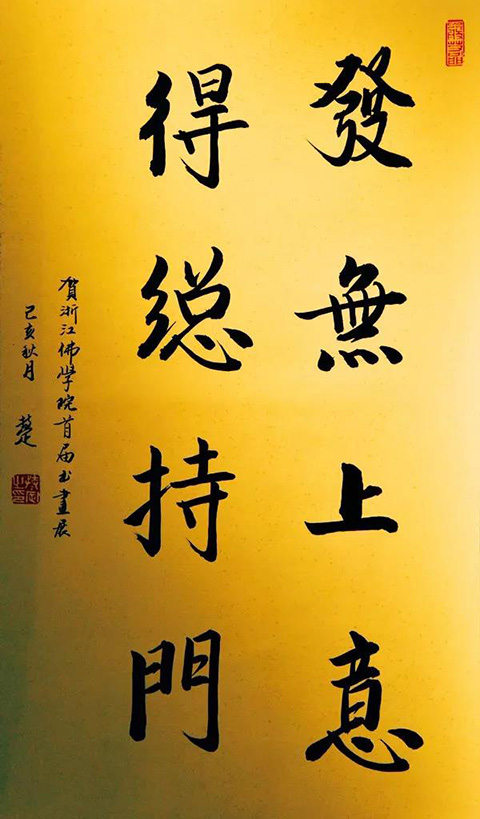 發無上意
得総持門
賀浙江佛學院首届书畫展
己亥秋月